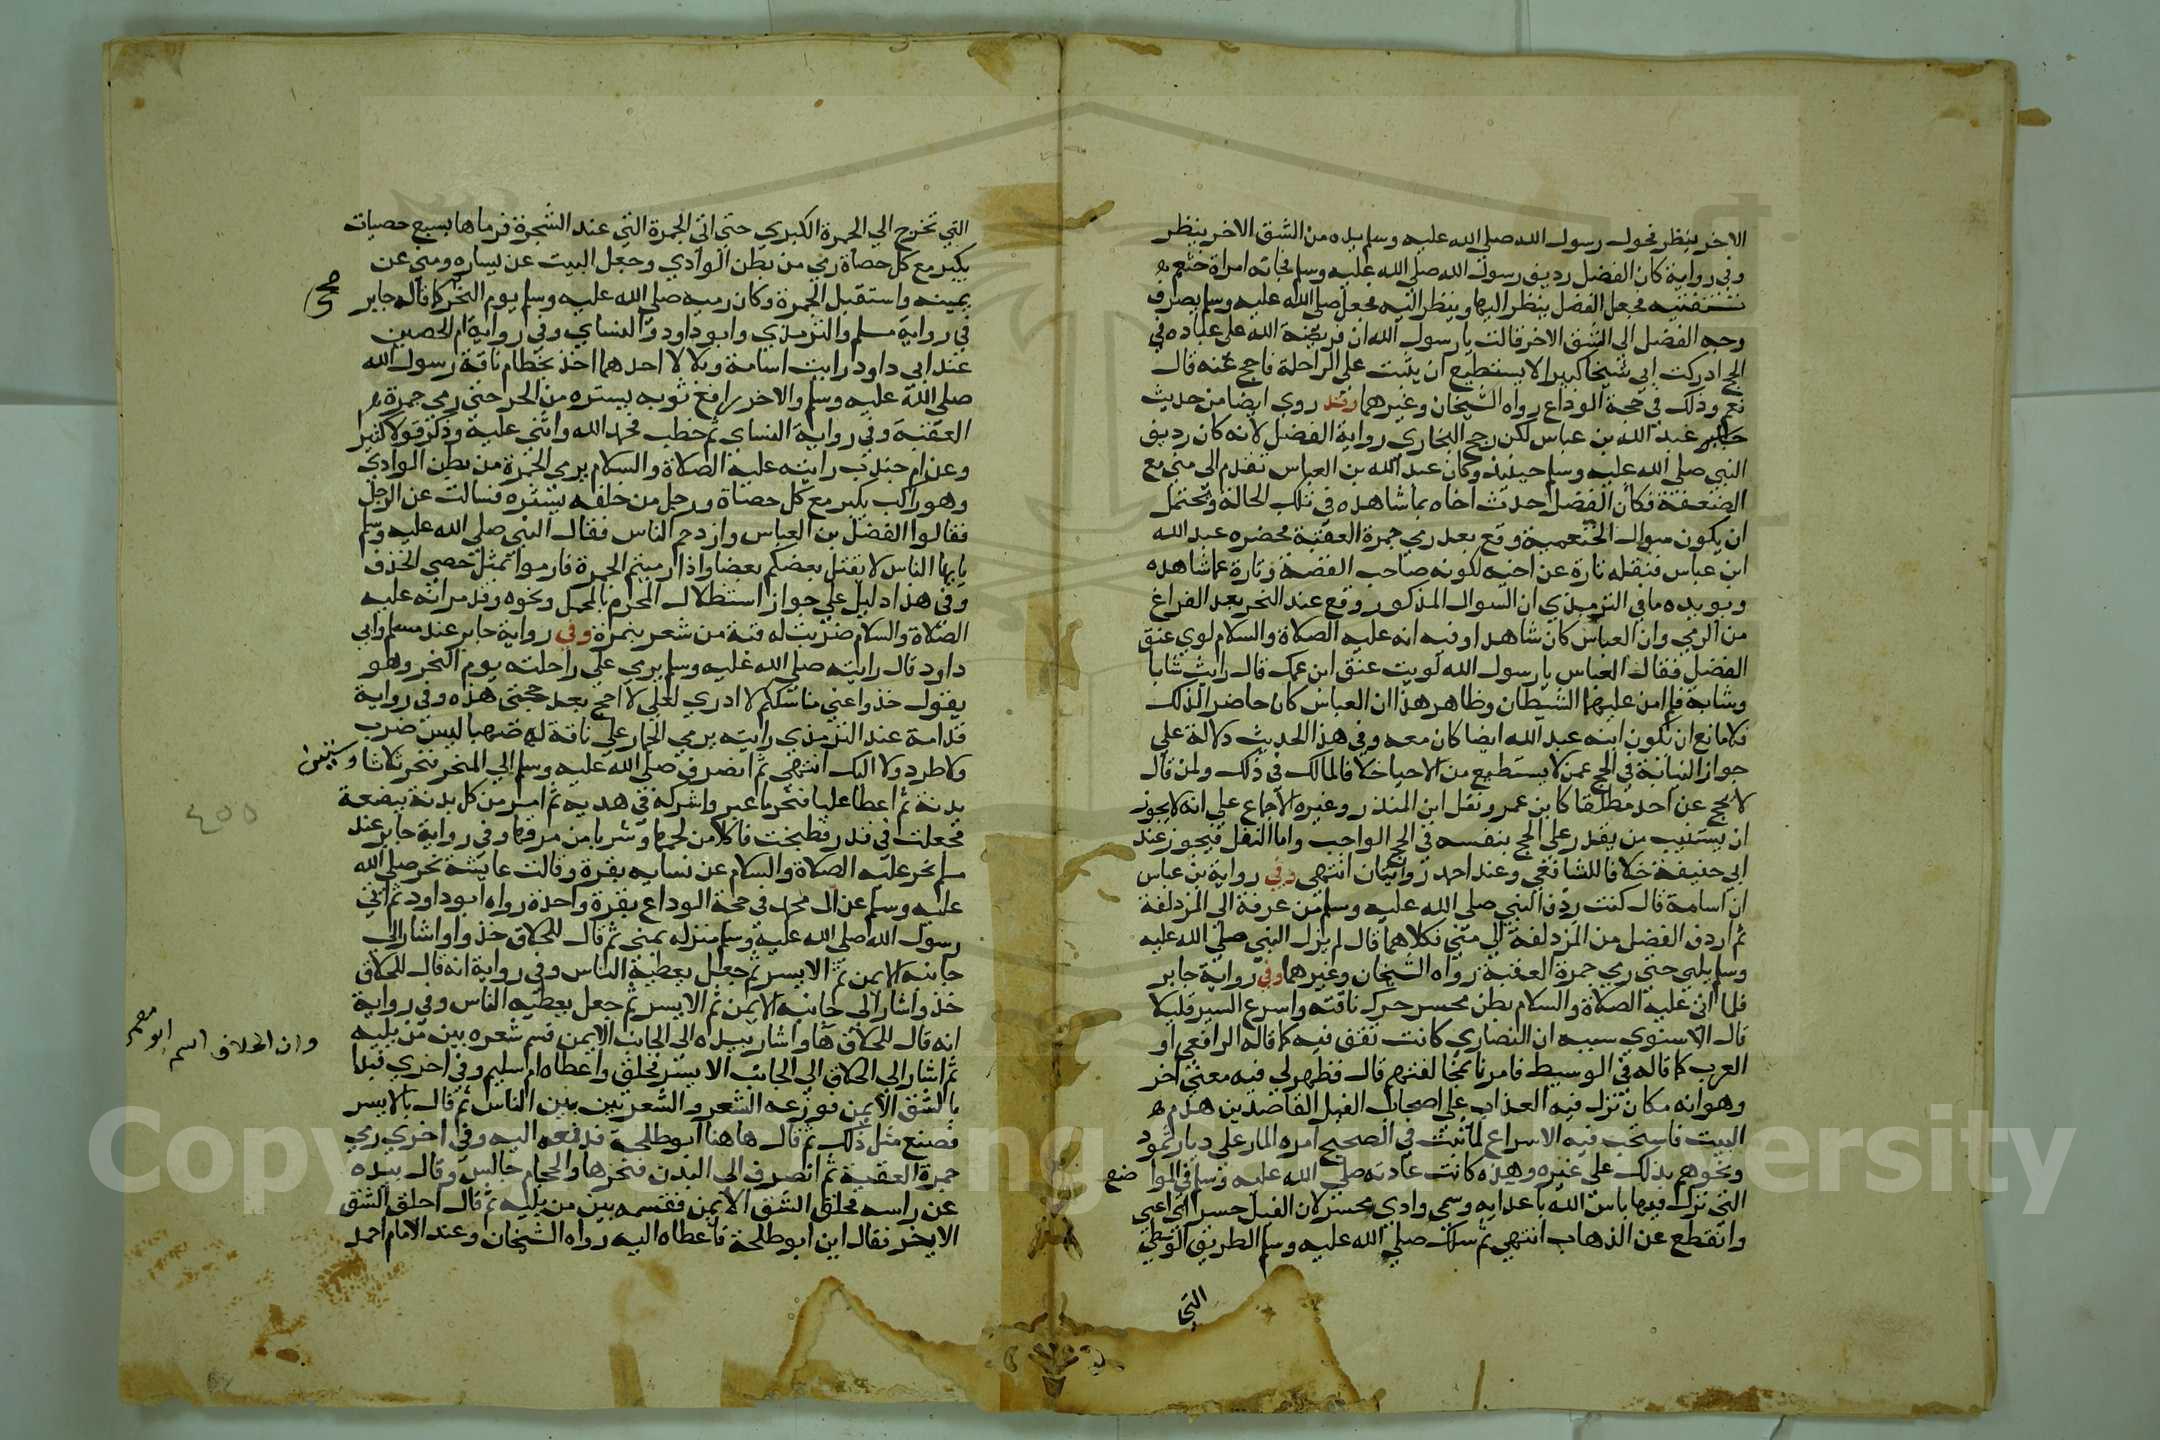 الاخر ينظر فحول رسول الله صلي الله عليه وسلم يده من الشق الاخر ينظر
وفي رواية كان الفضل رديف رسول الله صلي الله عليه وسلم فجاته امراة خثعم
تستفتيه فجعل الفضل ينظر اليها وينظر اليه فجعل صلي الله عليه وسلم يصرف
وجه الفضل الي الشق الاخر فقالت يا رسول الله ان فريضة الله علي عباده في
الحج ادركت ابي شيخا كبيرا لا يستطيع ان يثبت علي الراحلة فاحج عنه قال
نعم وذلك في حجة الوداع رواه الشيخان وغيرهما وقد روي ايضا من حديث
عبد الله بن عباس لكن رجح البخاري رواية الفضل لانه كان رديف
النبي صلي الله عليه وسلم حينئذ وكان عبد الله بن العباس تقدم الي مني مع
الضعفة فكان الفضل حدث اخاه بما شاهده في تلك الحالة ويحتمل
ان يكون سوال الخثعمية وقع بعد رمي جمرة العقبة فحضره عبد الله
ابن عباس فنقله تارة عن اخيه لكونه صاحب القصة وتارة عما شاهده
ويويده ما في الترمذي ان السوال المذكور وقع عند النحر بعد الفراغ
من الرمي وان العباس كان شاهدا وفيه انه عليه الصلاة والسلام لوي عنق
الفضل فقال العباس يا رسول الله لويت عنق ابن عمك قال رايت شابا
وشابة فلم امن عليهما الشيطان وظاهر هذا ان العباس كان حاضرا لذلك
فلا مانع ان تكون ابنه عبد الله ايضا كان معه وفي هذا الحديث دلالة علي
جواز النيابة في الحج عمن لا يستطيع من الاحيا خلافا لمالك في ذلك ولمن قال
لا يحج عن احد مطلقا كابن عمر ونقل ابن المنذر وغيره الاجماع علي انه لا يجوز
ان يستنيب من يقدر علي الحج بنفسه في الحج الواجب واما النفل فيجوز عند
ابي حنيفة خلافا للشافعي وعند احمد روايتان انتهي وفي رواية بن عباس
ان اسامة قال كنت ردف النبي صلي الله عليه وسلم من عرفة الي المزدلفة
ثم اردف الفضل من المزدلفة الي مني فكلاهما قال لم يزل النبي صلي الله عليه
وسلم يلبي حتي رمي جمرة العقبة رواه الشيخان وغيرهما وفي رواية جابر
فلما اتي عليه الصلاة والسلام بطن محسر حرك ناقته واسرع السير قليلا
قال الاسنوي سببه ان النصاري كانت تقف فيه كما قاله الرافعي او
العرب كما قاله في الوسيط فامرنا بمخالفتهم قال فظهر لي فيه معني اخر
وهو انه مكان نزل فيه العذاب علي اصحاب الفيل القاصدين هدم
البيت فاستحب فيه الاسراع لما ثبت في الصحيح امره المار علي ديار ثمود
ونحوهم بذلك علي غيره وهذه كانت عادته صلي الله عليه وسلم في المواضع
التي نزل فيها باس الله باعدايه وسمي وادي محسر لان الفيل حسر اي اعيي
وانقطع عن الذهاب انتهي ثم سلك صلي الله عليه وسلم الطريق الوسطي
التي
التي تخرج الي الجمرة الكبري حتي اتي الجمرة التي عند الشجرة فرماها بسبع حصيات
يكبر مع كل حصاة رمي من بطن الوادي وجعل البيت عن يساره ومني عن
يمينه واستقبل الجمرة وكان رميه صلي الله عليه وسلم يوم النحر كما قاله جابر
في رواية مسلم والترمذي وابو داود والنساي وفي رواية ام الحصين
عند ابي داود رايت اسامة وبلالا احدهما اخذ بخطام ناقة رسول الله
صلي الله عليه وسلم والاخر رافع ثوبه يستره من الحر حتي رمي جمرة
العقبة وفي رواية النساي ثم خطب فحمد الله واثني عليه وذكر قولا كثيرا
وعن ام جندب رايته عليه الصلاة والسلام يرمي الجمرة من بطن الوادي
وهو راكب يكبر مع كل حصاة ورجل من خلفه يستره فسالت عن الرجل
فقالوا الفضل بن العباس وازدحم الناس فقال النبي صلي الله عليه وسلم
يايها الناس لا يقتل بعضكم بعضا واذا رميتم الجمرة فارموا بمثل حصي الخذف
وفي هذا دليل علي جواز استظلال المحرم بالمحمل ونحوه وقد مر انه عليه
الصلاة والسلام ضربت له قبة من شعر بنمرة وفي رواية جابر عند مسلم وابي
داود قال رايته صلي الله عليه وسلم يرمي علي راحلته يوم النحر وهو
يقول خذوا عني مناسككم لا ادري لعلي لا احج بعد حجتي هذه وفي رواية
قدامة عند الترمذي رايته يرمي الجمار علي ناقة له صهبا ليس ضرب
ولا طرد ولا اليك انتهي ثم انصرف صلي الله عليه وسلم الي المنحر فنحر ثلاثا وستين
بدنة ثم اعطا عليا فنحر ما غبر واشركه في هديه ثم امر من كل بدنة ببضعة
فجعلت في قدر فطبخت فاكلا من لحمها وشربا من مرقها وفي رواية جابر عند
مسلم نحر عليه الصلاة والسلام عن نسايه بقرة وقالت عايشة نحر صلي الله
عليه وسلم عن ال محمد في حجة الوداع بقرة واحدة رواه ابو داود ثم اتي
رسول الله صلي الله عليه وسلم منزله بمني ثم قال للحلاق خذ واواشار الي
جانبه الايمن ثم الايسر ثم جعل يعطيه الناس وفي رواية انه قال للحلاق
خذ واشار الي جانبه الايمن ثم الايسر ثم جعل يعطيه الناس وفي رواية
انه قال للحلاق ها واشار بيده الي الجانب الايمن فقسم شعره بين من يليه
ثم اشار الي الحلاق الي الجانب الايسر فحلق واعطاه ام سليم وفي اخري فبدا
بالشق الايمن فوزعه الشعر والشعرتين بين الناس ثم قال بالايسر
فصنع مثل ذلك ثم قال هاهنا ابو طلحة فدفعه اليه وفي اخري رمي
جمرة العقبة ثم انصرف الي البدن فنحرها والحجام جالس وقال بيده
عن راسه فحلق الشق الايمن فقسمه بين من يليه ثم قال احلق الشق
الاخر فقال اين ابو طلحة فاعطاه اياه رواه الشيخان وعند الامام احمد
وان الحلاق اسم ابو معمر
٤٥٥
Copyright © King Saud University